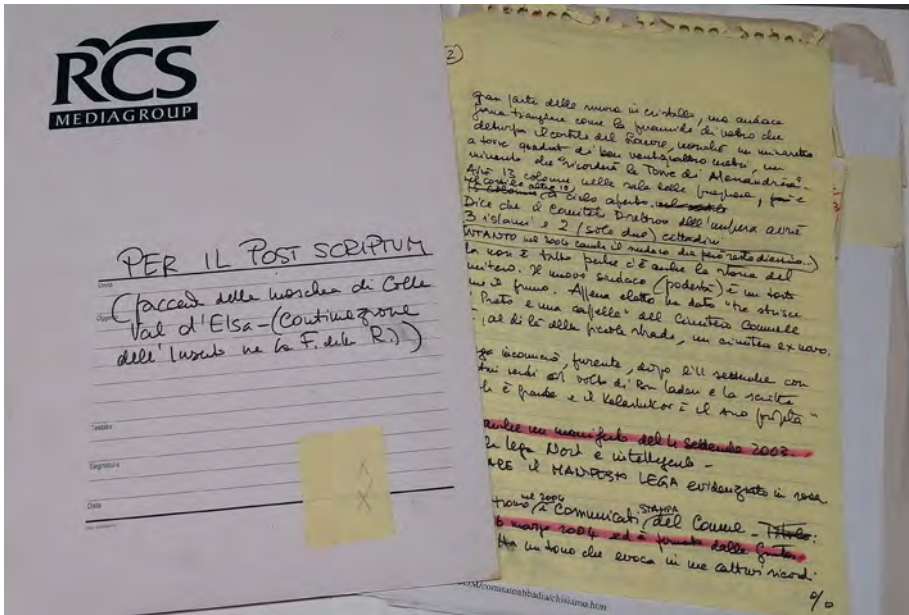 RCS
MEDIAGROUP
PER IL POST SCRIPTUM
(faccenda della moschea di Colle
Val d'Elsa – (continuazione
dell'Inserto ne La F. della R.))
Testata
Segnatura
Data
X
X
2)
gran parte delle mura in cristallo, una
forma triangolare come la piramide di vetro che
deturpa il cortile del Louvre, nonché un minareto
a torre quadrata di ben ventiquattro metri, un
minareto che "ricorderà la Torre di Alessandria".
Avrà 13 colonne nella sala delle preghiera, poi e
nel cortile altre 13
a cielo aperto.
Dice che il Comitato Direttivo dell'impresa avrà
3 islamici e 2 (solo due) cittadini
INTANTO nel 2004 cambia il sindaco che però resta diessino...)
non è tutto perché c'è anche la storia del
Il nuovo sindaco (podestà) è un
il primo. Appena eletto ha dato "tre strisce
Prato e una cappella" del Cimitero Comunale
, al di là della piccola strada, un cimitero ex novo.
incominciò, furente, dopo l'11 settembre con
versi col volto di Bin Laden e la scritta
è grande e il Kalashnikov è il suo profeta"
anche un manifesto del 4 Settembre 2003.
Lega Nord è intelligente –
ARE il MANIFESTO LEGA evidenziato in rosa
nel 2004 STAMPA
i Comunicati del Comune – Titolo:
6 marzo 2004 ed è firmato dalla Giunta.
un tono che evoca in me cattivi ricordi.
OM/comitatoabbadia/chisiamo.htm
%